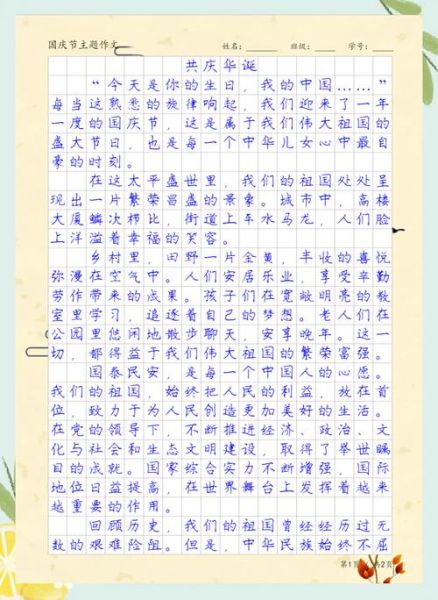 国庆节主题作文 姓名：______ 班级：____ 学号：____
共庆华诞
“今天是你的生日，我的中国……”
每当这熟悉的旋律响起，我们迎来了一年
一度的国庆节，这是属于我们伟大祖国的
盛大节日，也是每一个中华儿女心中最自
豪的时刻。
在这太平盛世里，我们的祖国处处呈
现出一片繁荣昌盛的景象。城市中，高楼
大厦鳞次栉比，街道上车水马龙，人们脸
上洋溢着幸福的笑容。
乡村里，田野一片金黄，丰收的喜悦
弥漫在空气中。人们安居乐业，享受辛勤
劳作带来的成果。孩子们在宽敞明亮的教
室里学习，追逐着自己的梦想。老人们在
公园里悠闲地散步聊天，安享晚年。这一
切，都得益于我们伟大祖国的繁荣富强。
国泰民安，是每一个中国人的心愿。
我们的祖国，始终把人民的利益，放在首
位，致力于为人民创造更加美好的生活。
在党的领导下，不断推进经济、政治、文
化与社会和生态文明建设，取得了举世瞩
目的成就。国家综合实力不断增强，国际
地位日益提高，在世界舞台上发挥着越来
越重要的作用。
回顾历史，我们的祖国曾经经历过无
数的艰难险阻。但是，中华民族始终不屈
第1页 共2页